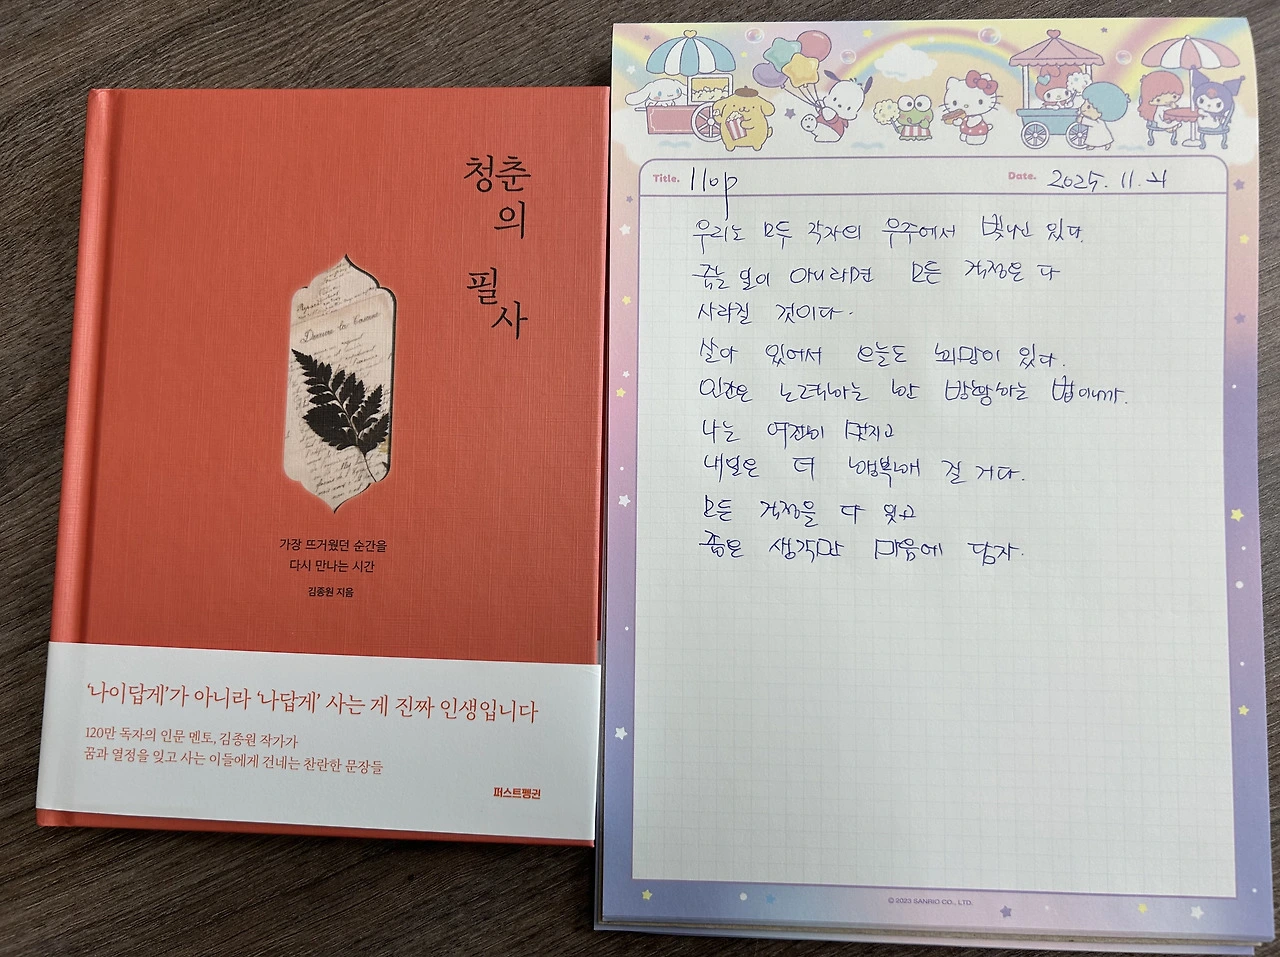 청춘
의
필
사
가장 뜨거웠던 순간을
다시 만나는 시간
김종원 지음
‘나이답게’가 아니라 ‘나답게’ 사는 게 진짜 인생입니다
120만 독자의 인문 멘토, 김종원 작가가
꿈과 열정을 잊고 사는 이들에게 건네는 찬란한 문장들
퍼스트펭귄
Title. 110p
Date. 2025. 11.
우리는 모두 각자의 우주에서 빛나고 있다.
죽는 일이 아니라면 모든 걱정은 다
사라질 것이다.
살아 있어서 오늘도 희망이 있다.
인간은 노력하는 한 방황하는 법이니까.
나는 여전히 멋지고
내일은 더 행복해 질 거다.
모든 걱정을 다 잊고
좋은 생각만 마음에 담자.
© 2023 SANRIO CO., LTD.